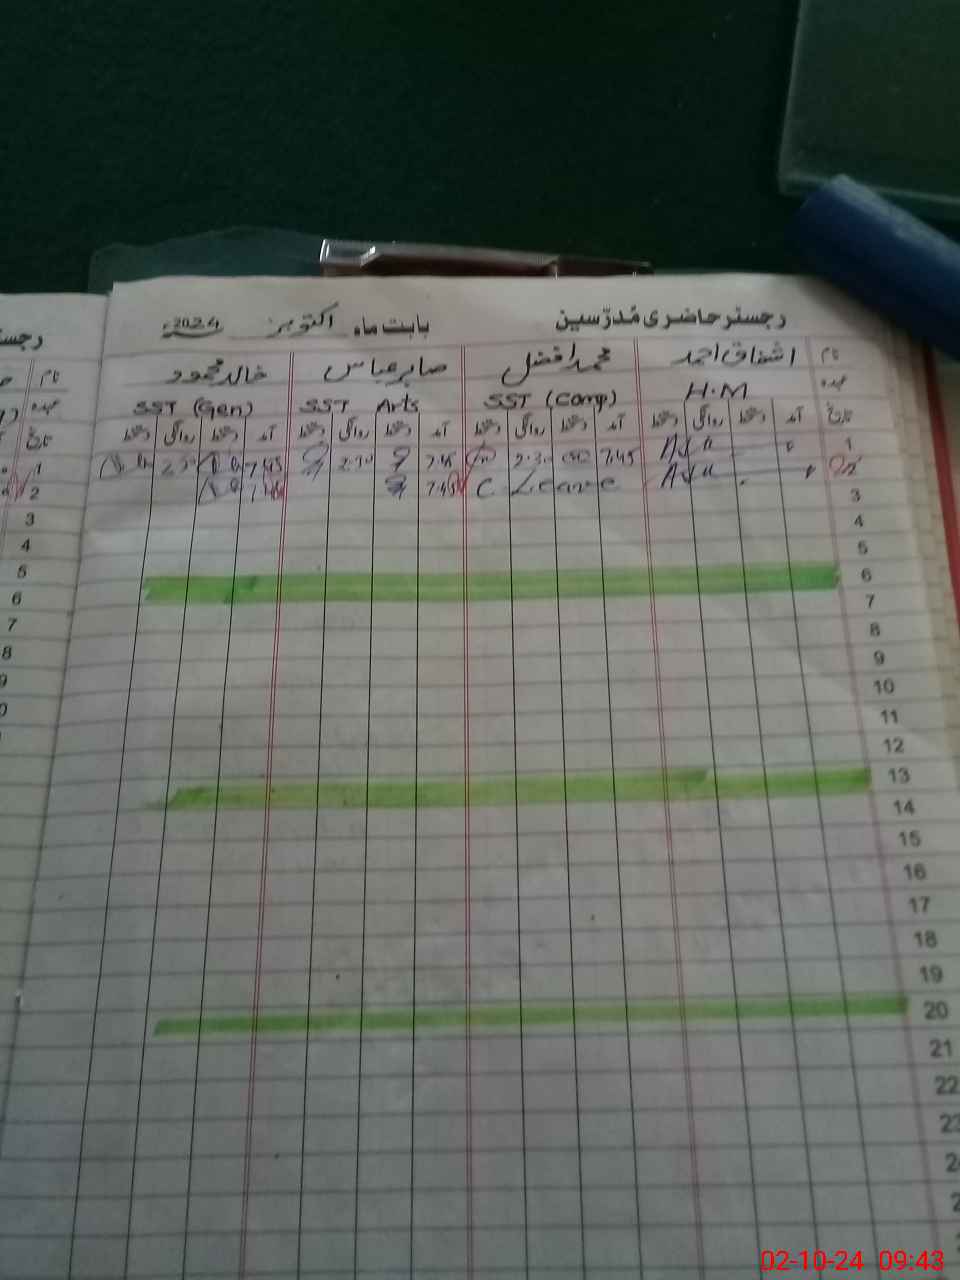 رجسٹر حاضری مُدرّسین بابت ماہ اکتوبر 2024ء
نام اشفاق احمد محمد افضل صابر عباس خالد محمود
عہدہ H.M SST (Comp) SST Arts SST (Gen)
تاریخ آمد دستخط روانگی دستخط آمد دستخط روانگی دستخط آمد دستخط روانگی دستخط آمد دستخط روانگی دستخط
1 7.45 2.30 7.45 2.30 7.45 2.30
2 C Leave 7.45 7.45
3
4
5
6
7
8
9
10
11
12
13
14
15
16
17
18
19
20
21
22
رجسٹر
نام
عہدہ
تاریخ
1
2
3
4
5
6
7
8
9
0
02-10-24 09:43